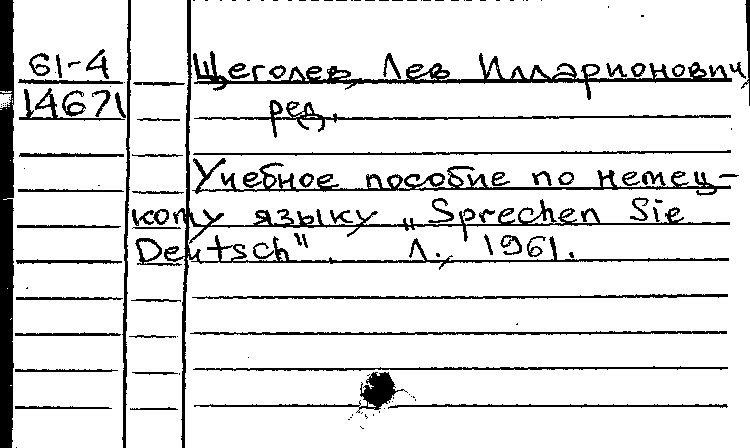 61-4 Щеголев, Лев Илларионович,
14671 ред.
Учебное пособие по немец-
кому языку „Sprechen Sie
Deutsch". Л., 1961.